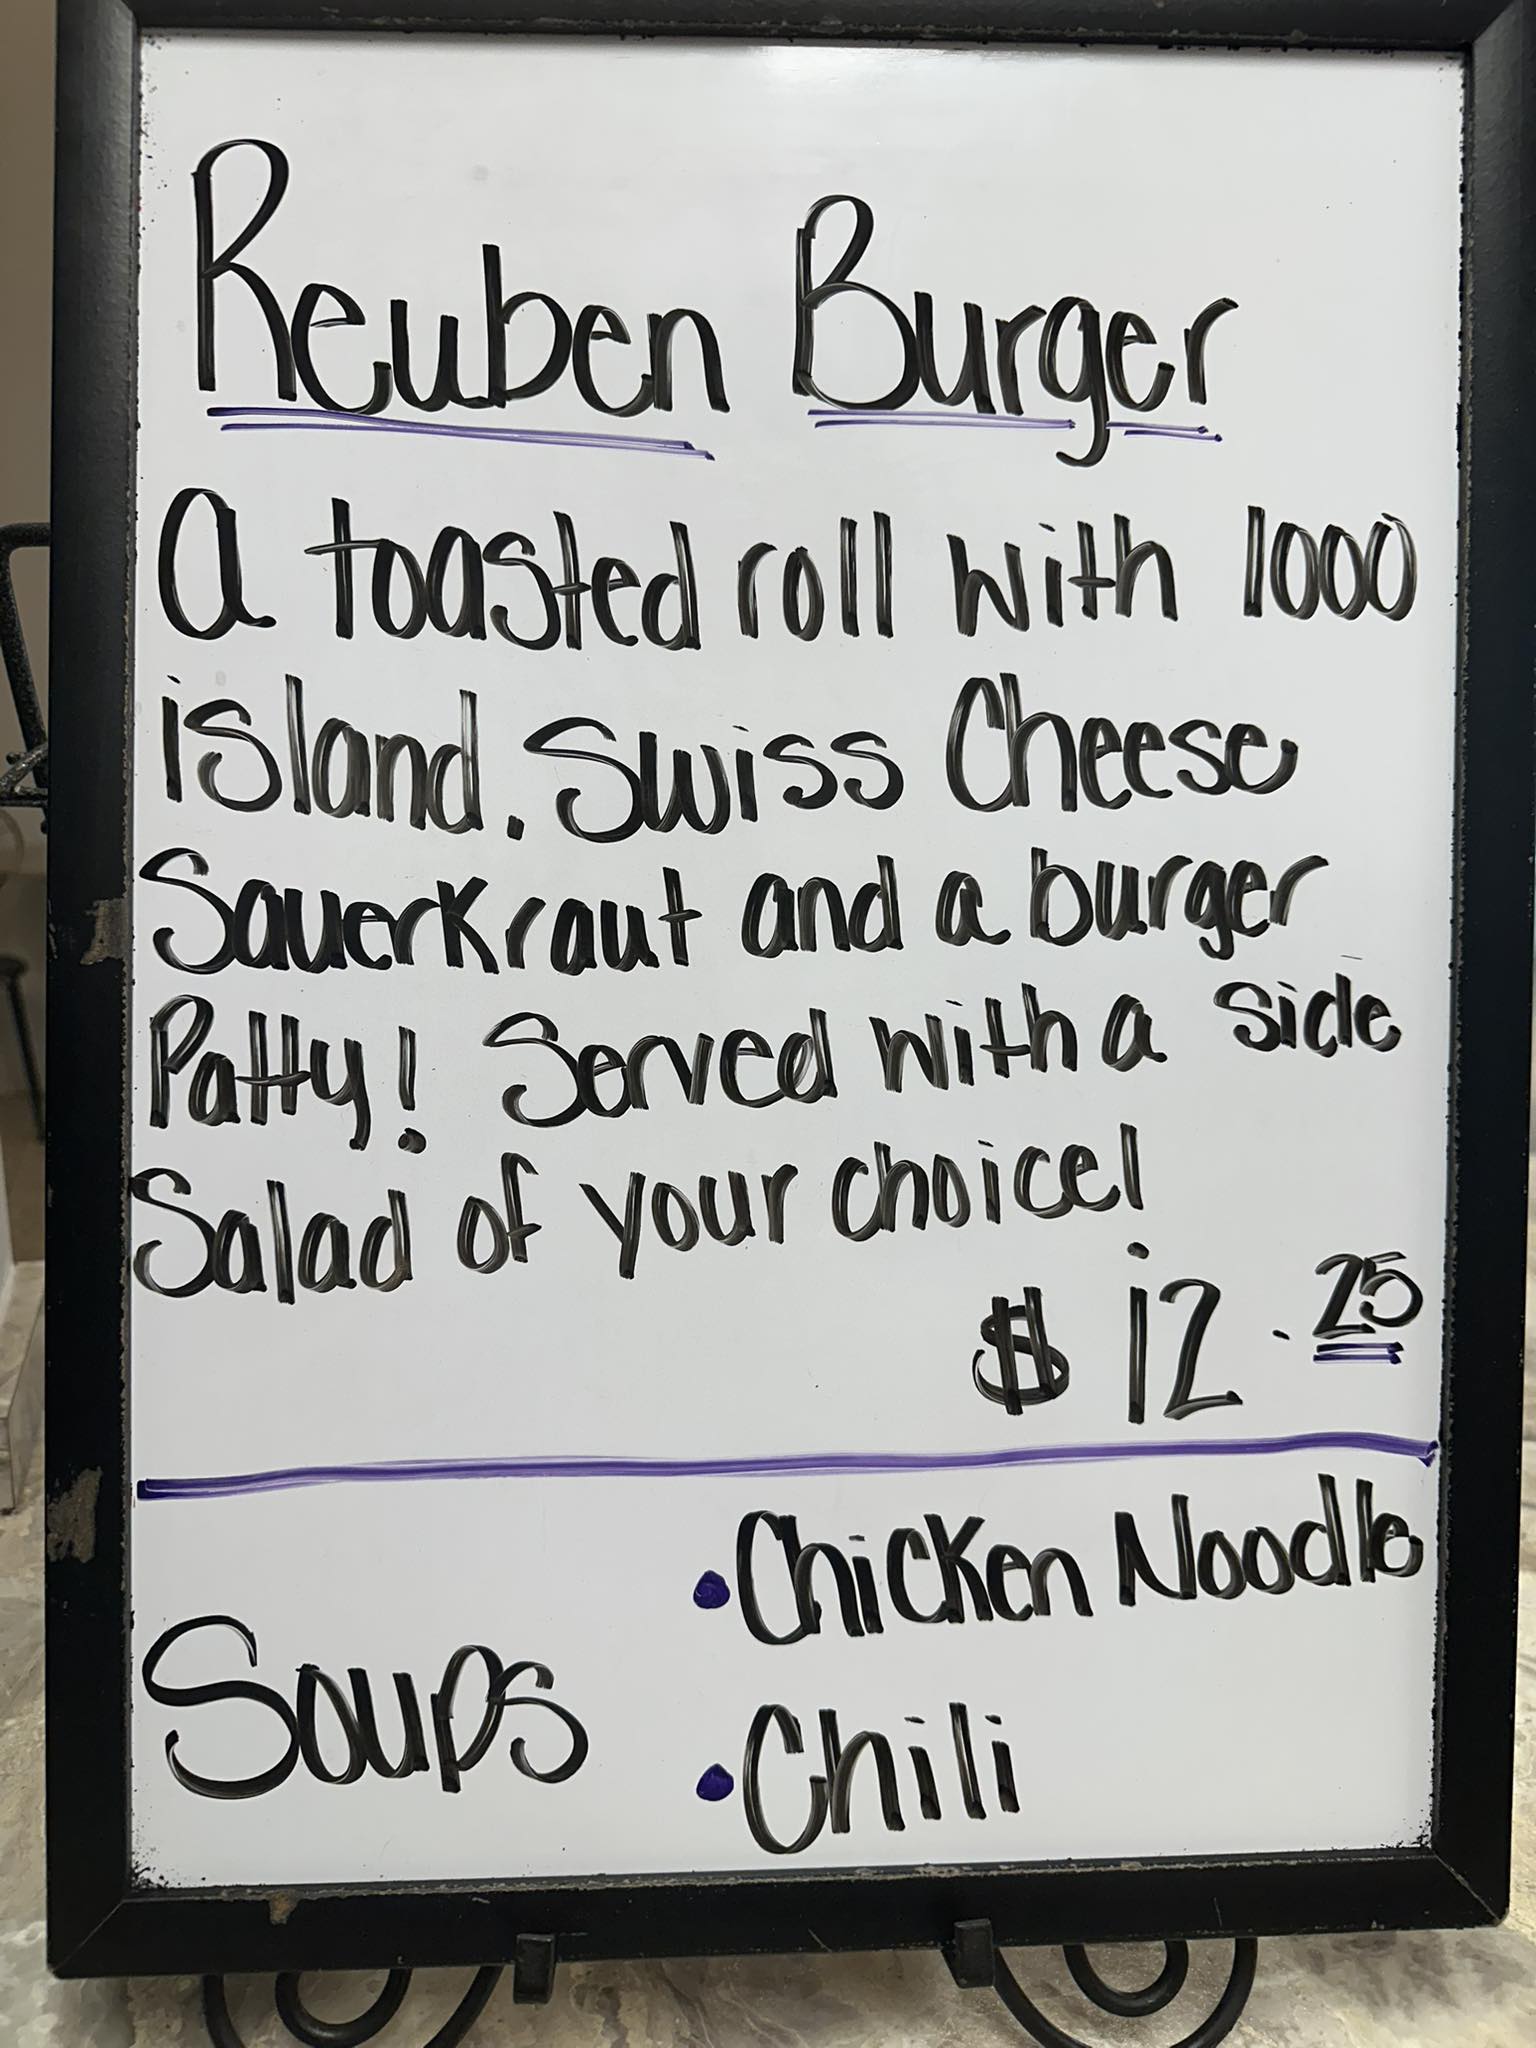 Reuben Burger
A toasted roll with 1000
island. Swiss Cheese
Sauerkraut and a burger
Patty! Served with a side
Salad of your choice!
$12.25
• Chicken Noodle
Soups
• Chili